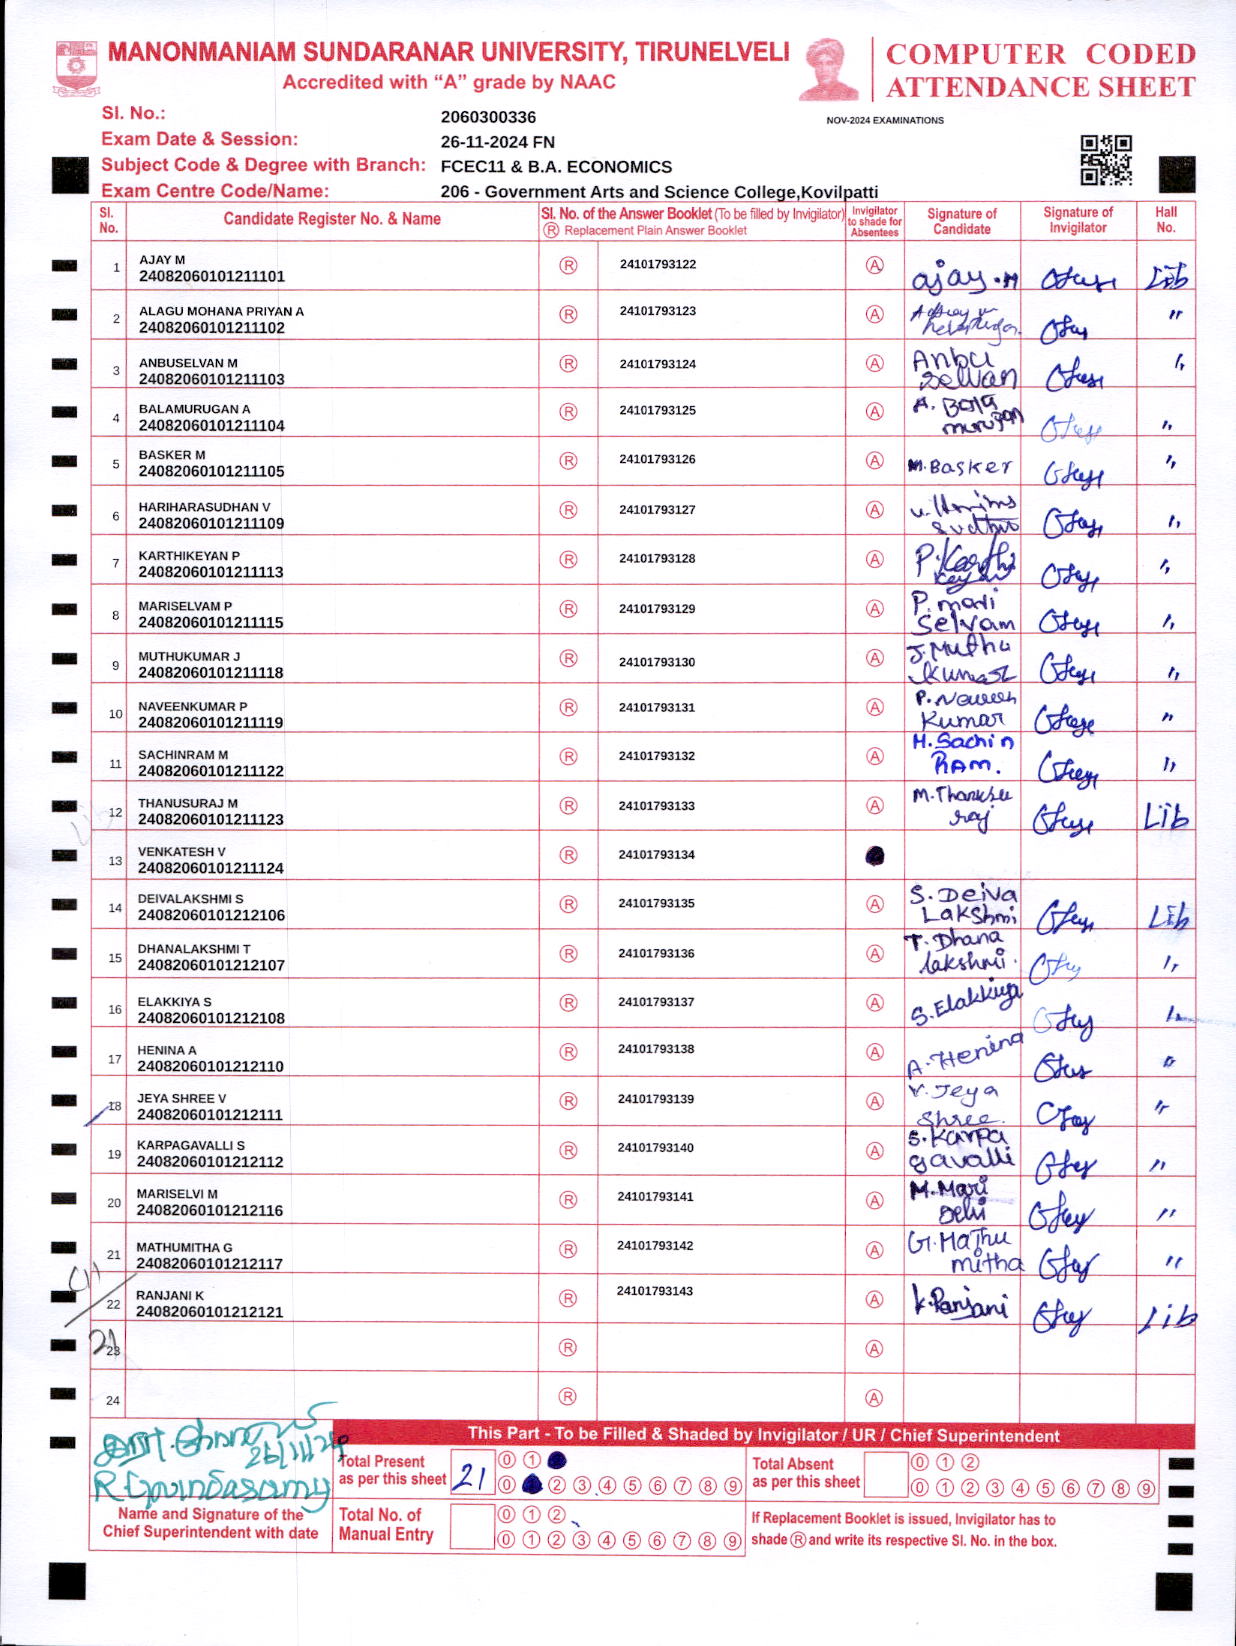 MANONMANIAM SUNDARANAR UNIVERSITY, TIRUNELVELI
Accredited with “A” grade by NAAC
COMPUTER CODED
ATTENDANCE SHEET
NOV-2024 EXAMINATIONS
Sl. No.: 2060300336
Exam Date & Session: 26-11-2024 FN
Subject Code & Degree with Branch: FCEC11 & B.A. ECONOMICS
Exam Centre Code/Name: 206 - Government Arts and Science College,Kovilpatti
Sl. No. Candidate Register No. & Name Sl. No. of the Answer Booklet (To be filled by Invigilator) Ⓡ Replacement Plain Answer Booklet Invigilator to shade for Absentees Signature of Candidate Signature of Invigilator Hall No.
1 AJAY M 24082060101211101 Ⓡ 24101793122 Ⓐ ajay.M Lib
2 ALAGU MOHANA PRIYAN A 24082060101211102 Ⓡ 24101793123 Ⓐ "
3 ANBUSELVAN M 24082060101211103 Ⓡ 24101793124 Ⓐ Anbu Selvan "
4 BALAMURUGAN A 24082060101211104 Ⓡ 24101793125 Ⓐ A. Bala murugan "
5 BASKER M 24082060101211105 Ⓡ 24101793126 Ⓐ M.Basker "
6 HARIHARASUDHAN V 24082060101211109 Ⓡ 24101793127 Ⓐ "
7 KARTHIKEYAN P 24082060101211113 Ⓡ 24101793128 Ⓐ P.Karthi keyan "
8 MARISELVAM P 24082060101211115 Ⓡ 24101793129 Ⓐ P.mari Selvam "
9 MUTHUKUMAR J 24082060101211118 Ⓡ 24101793130 Ⓐ J.Muthu kumar "
10 NAVEENKUMAR P 24082060101211119 Ⓡ 24101793131 Ⓐ P.Naveen Kumar "
11 SACHINRAM M 24082060101211122 Ⓡ 24101793132 Ⓐ M.Sachin RAM. "
12 THANUSURAJ M 24082060101211123 Ⓡ 24101793133 Ⓐ M.Thanusu raj Lib
13 VENKATESH V 24082060101211124 Ⓡ 24101793134
14 DEIVALAKSHMI S 24082060101212106 Ⓡ 24101793135 Ⓐ S.Deiva Lakshmi Lib
15 DHANALAKSHMI T 24082060101212107 Ⓡ 24101793136 Ⓐ T.Dhana lakshmi. "
16 ELAKKIYA S 24082060101212108 Ⓡ 24101793137 Ⓐ S.Elakkiya "
17 HENINA A 24082060101212110 Ⓡ 24101793138 Ⓐ A.Henina "
18 JEYA SHREE V 24082060101212111 Ⓡ 24101793139 Ⓐ V.Jeya Shree. "
19 KARPAGAVALLI S 24082060101212112 Ⓡ 24101793140 Ⓐ S.Karpa gavalli "
20 MARISELVI M 24082060101212116 Ⓡ 24101793141 Ⓐ M.Mari Selvi "
21 MATHUMITHA G 24082060101212117 Ⓡ 24101793142 Ⓐ G.Mathu mitha "
22 RANJANI K 24082060101212121 Ⓡ 24101793143 Ⓐ K.Ranjani Lib
21
23 Ⓡ Ⓐ
24 Ⓡ Ⓐ
26/11/24
R Govindasamy
Name and Signature of the
Chief Superintendent with date
This Part - To be Filled & Shaded by Invigilator / UR / Chief Superintendent
Total Present as per this sheet 21
0 1
0 2 3 4 5 6 7 8 9
Total Absent as per this sheet
0 1 2
0 1 2 3 4 5 6 7 8 9
Total No. of Manual Entry
0 1 2
0 1 2 3 4 5 6 7 8 9
If Replacement Booklet is issued, Invigilator has to
shade Ⓡ and write its respective Sl. No. in the box.